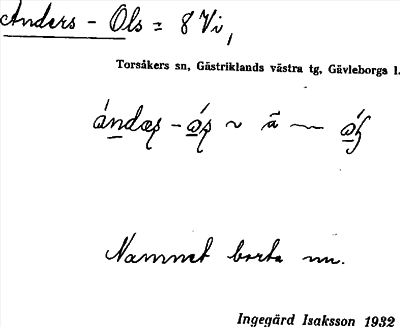 Anders - Ols = 8 Vi,
Torsåkers sn, Gästriklands västra tg, Gävleborgs l.
Namnet borta nu.
Ingegärd Isaksson 1932